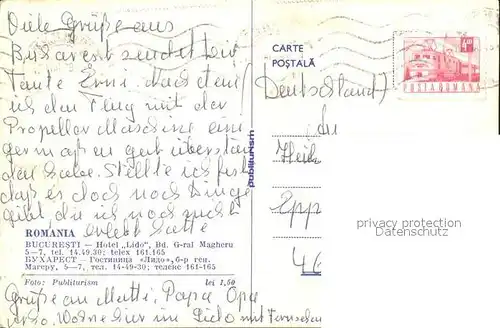 Viele Grüße aus
Bukarest sendet Dir
Tante Erni. Nachdem
ich den Flug mit der
Propeller Maschine eini
germaßen gut überstan
den habe. Stellte ich fest
daß es doch noch Dinge
gibt die ich noch nicht
erlebt hatte
ROMANIA
BUCUREȘTI — Hotel „Lido”, Bd. G-ral Magheru
5—7, tel. 14.49.30; telex 161.165
БУХАРЕСТ — Гостиница «Лидо», б-р ген.
Магеру, 5—7, тел. 14-49-30; телекс 161-165
Foto: Publiturism lei 1,50
Grüße an Mutti, Papa Opa
Wohne hier im Lido mit Fernsehen
publiturism
CARTE
POȘTALĂ
4,80
POSTA ROMANA
(Deutschland)
Epp
privacy protection
watermark